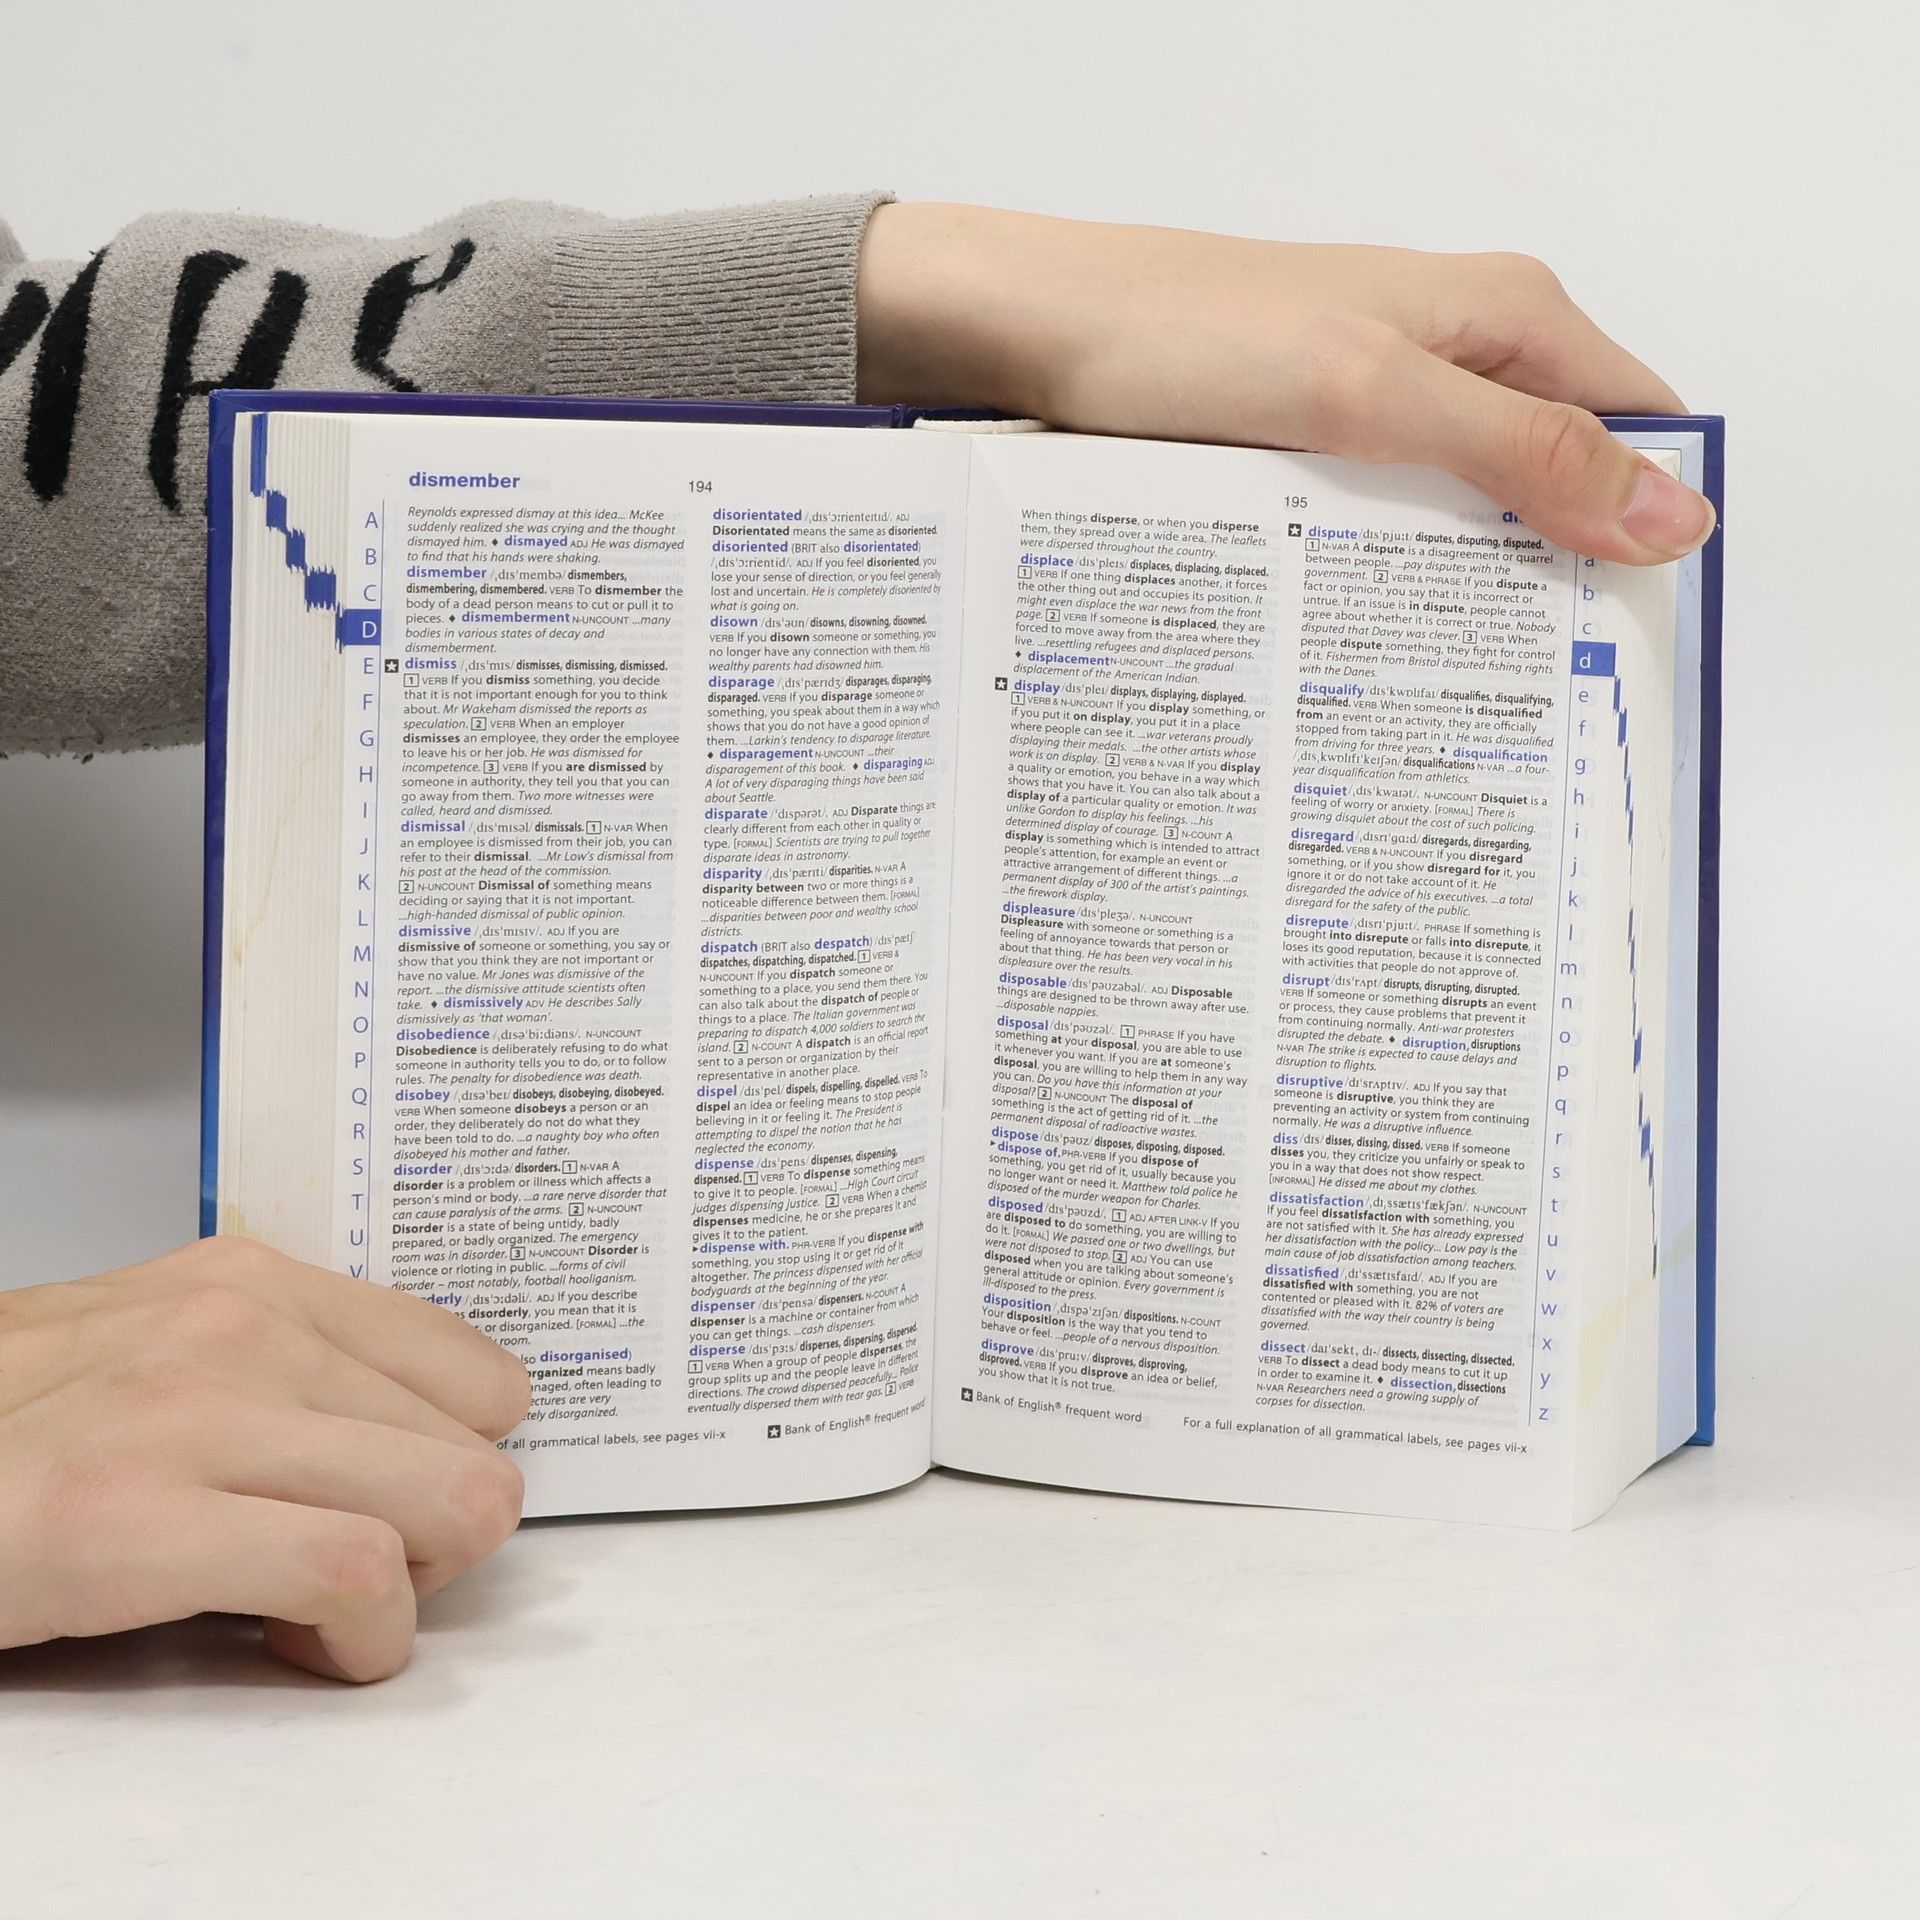 dismember
194
A
B
C
D
E
F
G
H
I
J
K
L
M
N
O
P
Q
R
S
T
U
V
Reynolds expressed dismay at this idea... McKee
suddenly realized she was crying and the thought
dismayed him. ♦ dismayed ADJ He was dismayed
to find that his hands were shaking.
dismember /ˌdɪsˈmembə/ dismembers,
dismembering, dismembered. VERB To dismember the
body of a dead person means to cut or pull it to
pieces. ♦ dismemberment N-UNCOUNT ...many
bodies in various states of decay and
dismemberment.
★ dismiss /ˌdɪsˈmɪs/ dismisses, dismissing, dismissed.
1 VERB If you dismiss something, you decide
that it is not important enough for you to think
about. Mr Wakeham dismissed the reports as
speculation. 2 VERB When an employer
dismisses an employee, they order the employee
to leave his or her job. He was dismissed for
incompetence. 3 VERB If you are dismissed by
someone in authority, they tell you that you can
go away from them. Two more witnesses were
called, heard and dismissed.
dismissal /ˌdɪsˈmɪsəl/ dismissals. 1 N-VAR When
an employee is dismissed from their job, you can
refer to their dismissal. ...Mr Low's dismissal from
his post at the head of the commission.
2 N-UNCOUNT Dismissal of something means
deciding or saying that it is not important.
...high-handed dismissal of public opinion.
dismissive /ˌdɪsˈmɪsɪv/. ADJ If you are
dismissive of someone or something, you say or
show that you think they are not important or
have no value. Mr Jones was dismissive of the
report. ...the dismissive attitude scientists often
take. ♦ dismissively ADV He describes Sally
dismissively as 'that woman'.
disobedience /ˌdɪsəˈbiːdiəns/. N-UNCOUNT
Disobedience is deliberately refusing to do what
someone in authority tells you to do, or to follow
rules. The penalty for disobedience was death.
disobey /ˌdɪsəˈbeɪ/ disobeys, disobeying, disobeyed.
VERB When someone disobeys a person or an
order, they deliberately do not do what they
have been told to do. ...a naughty boy who often
disobeyed his mother and father.
disorder /ˌdɪsˈɔːdə/ disorders. 1 N-VAR A
disorder is a problem or illness which affects a
person's mind or body. ...a rare nerve disorder that
can cause paralysis of the arms. 2 N-UNCOUNT
Disorder is a state of being untidy, badly
prepared, or badly organized. The emergency
room was in disorder. 3 N-UNCOUNT Disorder is
violence or rioting in public. ...forms of civil
disorder – most notably, football hooliganism.
rderly /ˌdɪsˈɔːdəli/. ADJ If you describe
s disorderly, you mean that it is
, or disorganized. [FORMAL] ...the
room.
lso disorganised)
organized means badly
naged, often leading to
ectures are very
tely disorganized.
disorientated /ˌdɪsˈɔːrienteɪtɪd/. ADJ
Disorientated means the same as disoriented.
disoriented (BRIT also disorientated)
/ˌdɪsˈɔːrientid/. ADJ If you feel disoriented, you
lose your sense of direction, or you feel generally
lost and uncertain. He is completely disoriented by
what is going on.
disown /dɪsˈəʊn/ disowns, disowning, disowned.
VERB If you disown someone or something, you
no longer have any connection with them. His
wealthy parents had disowned him.
disparage /ˌdɪsˈpærɪdʒ/ disparages, disparaging,
disparaged. VERB If you disparage someone or
something, you speak about them in a way which
shows that you do not have a good opinion of
them. ...Larkin's tendency to disparage literature.
♦ disparagement N-UNCOUNT ...their
disparagement of this book. ♦ disparaging ADJ
A lot of very disparaging things have been said
about Seattle.
disparate /ˈdɪspərət/. ADJ Disparate things are
clearly different from each other in quality or
type. [FORMAL] Scientists are trying to pull together
disparate ideas in astronomy.
disparity /ˌdɪsˈpærɪti/ disparities. N-VAR A
disparity between two or more things is a
noticeable difference between them. [FORMAL]
...disparities between poor and wealthy school
districts.
dispatch (BRIT also despatch) /dɪsˈpætʃ/
dispatches, dispatching, dispatched. 1 VERB &
N-UNCOUNT If you dispatch someone or
something to a place, you send them there. You
can also talk about the dispatch of people or
things to a place. The Italian government was
preparing to dispatch 4,000 soldiers to search the
island. 2 N-COUNT A dispatch is an official report
sent to a person or organization by their
representative in another place.
dispel /dɪsˈpel/ dispels, dispelling, dispelled. VERB To
dispel an idea or feeling means to stop people
believing in it or feeling it. The President is
attempting to dispel the notion that he has
neglected the economy.
dispense /dɪsˈpens/ dispenses, dispensing,
dispensed. 1 VERB To dispense something means
to give it to people. [FORMAL] ...High Court circuit
judges dispensing justice. 2 VERB When a chemist
dispenses medicine, he or she prepares it and
gives it to the patient.
▸dispense with. PHR-VERB If you dispense with
something, you stop using it or get rid of it
altogether. The princess dispensed with her official
bodyguards at the beginning of the year.
dispenser /dɪsˈpensə/ dispensers. N-COUNT A
dispenser is a machine or container from which
you can get things. ...cash dispensers.
disperse /dɪsˈpɜːs/ disperses, dispersing, dispersed.
1 VERB When a group of people disperses, the
group splits up and the people leave in different
directions. The crowd dispersed peacefully... Police
eventually dispersed them with tear gas. 2 VERB
of all grammatical labels, see pages vii-x
★ Bank of English® frequent word
195
di
When things disperse, or when you disperse
them, they spread over a wide area. The leaflets
were dispersed throughout the country.
displace /dɪsˈpleɪs/ displaces, displacing, displaced.
1 VERB If one thing displaces another, it forces
the other thing out and occupies its position. It
might even displace the war news from the front
page. 2 VERB If someone is displaced, they are
forced to move away from the area where they
live. ...resettling refugees and displaced persons.
♦ displacement N-UNCOUNT ...the gradual
displacement of the American Indian.
★ display /dɪsˈpleɪ/ displays, displaying, displayed.
1 VERB & N-UNCOUNT If you display something, or
if you put it on display, you put it in a place
where people can see it. ...war veterans proudly
displaying their medals. ...the other artists whose
work is on display. 2 VERB & N-VAR If you display
a quality or emotion, you behave in a way which
shows that you have it. You can also talk about a
display of a particular quality or emotion. It was
unlike Gordon to display his feelings. ...his
determined display of courage. 3 N-COUNT A
display is something which is intended to attract
people's attention, for example an event or
attractive arrangement of different things. ...a
permanent display of 300 of the artist's paintings.
...the firework display.
displeasure /dɪsˈpleʒə/. N-UNCOUNT
Displeasure with someone or something is a
feeling of annoyance towards that person or
about that thing. He has been very vocal in his
displeasure over the results.
disposable /dɪsˈpəʊzəbəl/. ADJ Disposable
things are designed to be thrown away after use.
...disposable nappies.
disposal /dɪsˈpəʊzəl/. 1 PHRASE If you have
something at your disposal, you are able to use
it whenever you want. If you are at someone's
disposal, you are willing to help them in any way
you can. Do you have this information at your
disposal? 2 N-UNCOUNT The disposal of
something is the act of getting rid of it. ...the
permanent disposal of radioactive wastes.
dispose /dɪsˈpəʊz/ disposes, disposing, disposed.
▸dispose of. PHR-VERB If you dispose of
something, you get rid of it, usually because you
no longer want or need it. Matthew told police he
disposed of the murder weapon for Charles.
disposed /dɪsˈpəʊzd/. 1 ADJ AFTER LINK-V If you
are disposed to do something, you are willing to
do it. [FORMAL] We passed one or two dwellings, but
were not disposed to stop. 2 ADJ You can use
disposed when you are talking about someone's
general attitude or opinion. Every government is
ill-disposed to the press.
disposition /ˌdɪspəˈzɪʃən/ dispositions. N-COUNT
Your disposition is the way that you tend to
behave or feel. ...people of a nervous disposition.
disprove /dɪsˈpruːv/ disproves, disproving,
disproved. VERB If you disprove an idea or belief,
you show that it is not true.
★ dispute /dɪsˈpjuːt/ disputes, disputing, disputed.
1 N-VAR A dispute is a disagreement or quarrel
between people. ...pay disputes with the
government. 2 VERB & PHRASE If you dispute a
fact or opinion, you say that it is incorrect or
untrue. If an issue is in dispute, people cannot
agree about whether it is correct or true. Nobody
disputed that Davey was clever. 3 VERB When
people dispute something, they fight for control
of it. Fishermen from Bristol disputed fishing rights
with the Danes.
disqualify /dɪsˈkwɒlɪfaɪ/ disqualifies, disqualifying,
disqualified. VERB When someone is disqualified
from an event or an activity, they are officially
stopped from taking part in it. He was disqualified
from driving for three years. ♦ disqualification
/ˌdɪsˌkwɒlɪfɪˈkeɪʃən/ disqualifications N-VAR ...a four-
year disqualification from athletics.
disquiet /dɪsˈkwaɪət/. N-UNCOUNT Disquiet is a
feeling of worry or anxiety. [FORMAL] There is
growing disquiet about the cost of such policing.
disregard /ˌdɪsrɪˈɡɑːd/ disregards, disregarding,
disregarded. VERB & N-UNCOUNT If you disregard
something, or if you show disregard for it, you
ignore it or do not take account of it. He
disregarded the advice of his executives. ...a total
disregard for the safety of the public.
disrepute /ˌdɪsrɪˈpjuːt/. PHRASE If something is
brought into disrepute or falls into disrepute, it
loses its good reputation, because it is connected
with activities that people do not approve of.
disrupt /dɪsˈrʌpt/ disrupts, disrupting, disrupted.
VERB If someone or something disrupts an event
or process, they cause problems that prevent it
from continuing normally. Anti-war protesters
disrupted the debate. ♦ disruption, disruptions
N-VAR The strike is expected to cause delays and
disruption to flights.
disruptive /dɪˈsrʌptɪv/. ADJ If you say that
someone is disruptive, you think they are
preventing an activity or system from continuing
normally. He was a disruptive influence.
diss /dɪs/ disses, dissing, dissed. VERB If someone
disses you, they criticize you unfairly or speak to
you in a way that does not show respect.
[INFORMAL] He dissed me about my clothes.
dissatisfaction /ˌdɪˌssætɪsˈfækʃən/. N-UNCOUNT
If you feel dissatisfaction with something, you
are not satisfied with it. She has already expressed
her dissatisfaction with the policy... Low pay is the
main cause of job dissatisfaction among teachers.
dissatisfied /ˌdɪˈssætɪsfaɪd/. ADJ If you are
dissatisfied with something, you are not
contented or pleased with it. 82% of voters are
dissatisfied with the way their country is being
governed.
dissect /daɪˈsekt, dɪ-/ dissects, dissecting, dissected.
VERB To dissect a dead body means to cut it up
in order to examine it. ♦ dissection, dissections
N-VAR Researchers need a growing supply of
corpses for dissection.
★ Bank of English® frequent word
For a full explanation of all grammatical labels, see pages vii-x
a
b
c
d
e
f
g
h
i
j
k
l
m
n
o
p
q
r
s
t
u
v
w
x
y
z